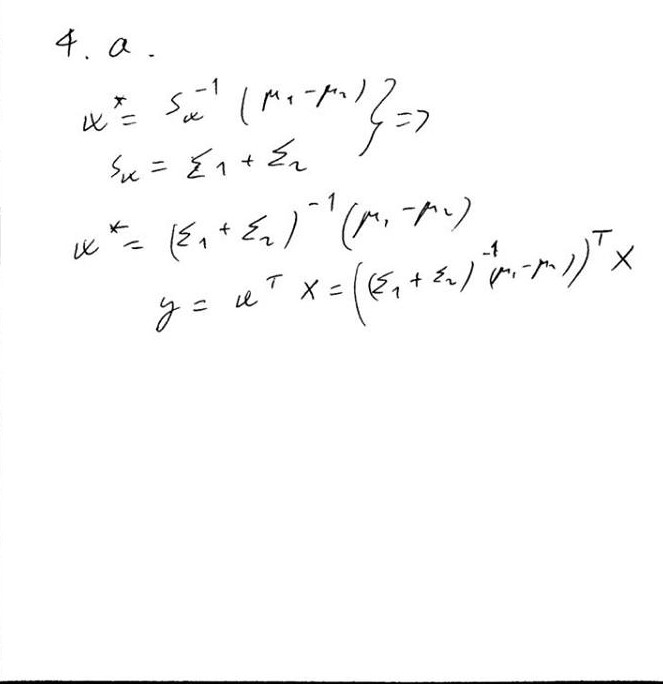 4. a.
w* = S_w^-1 (μ1 - μ2) } =>
S_w = Σ1 + Σ2
w* = (Σ1 + Σ2)^-1 (μ1 - μ2)
y = w^T x = ((Σ1 + Σ2)^-1 (μ1 - μ2))^T x